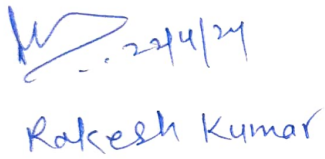 22/4/24
Rakesh Kumar